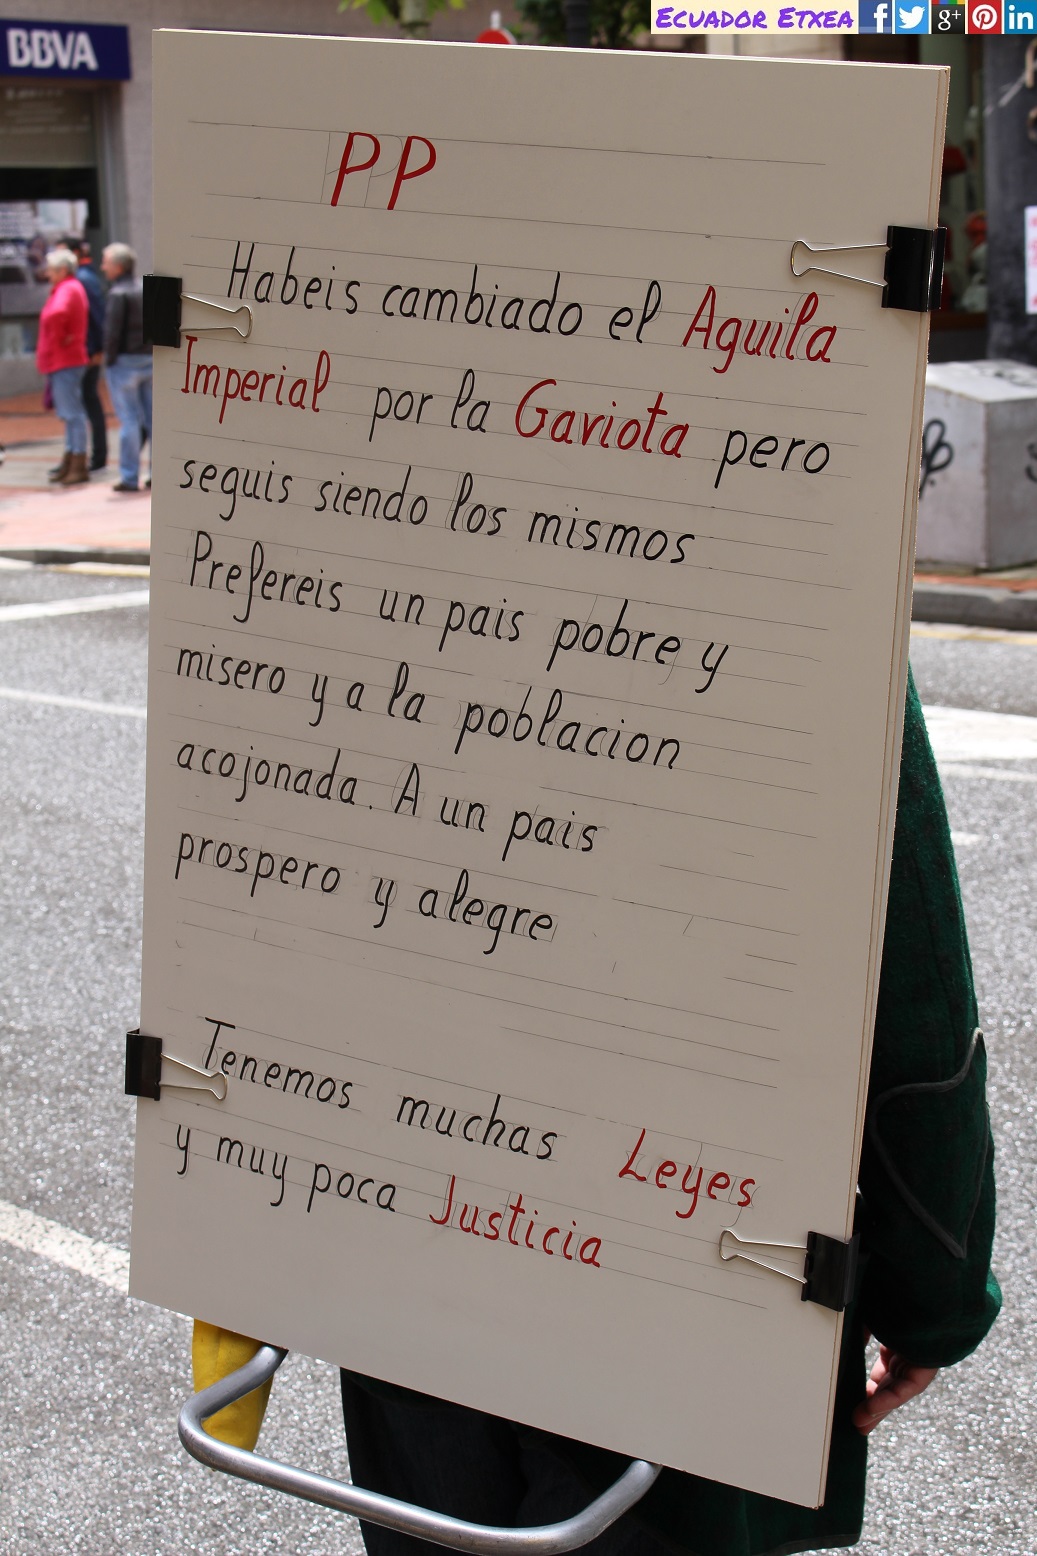 ECUADOR ETXEA
BBVA
PP
Habeis cambiado el Aguila
Imperial por la Gaviota pero
seguis siendo los mismos
Prefereis un pais pobre y
misero y a la poblacion
acojonada. A un pais
prospero y alegre
Tenemos muchas Leyes
y muy poca Justicia